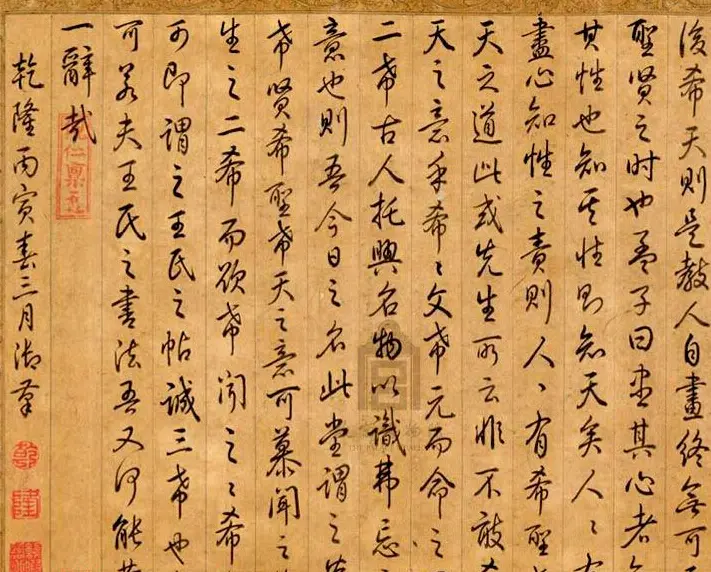 後希天則是教人自畫終無可
聖賢之時也孟子曰盡其心者
其性也知其性則知天矣人〻有
盡心知性之責則人〻有希聖
天之道此或先生所云非不敢希
天之意乎希〻文希元而命之
二希古人托興名物以識弗忘
意也則吾今日之名此堂謂之
希賢希聖希天之意可慕聞之
生之二希而欲希聞之〻希
可即謂之王氏之帖誠三希也
可若夫王氏之書法吾又何能
一辭哉
乾隆丙寅春三月御筆
隆